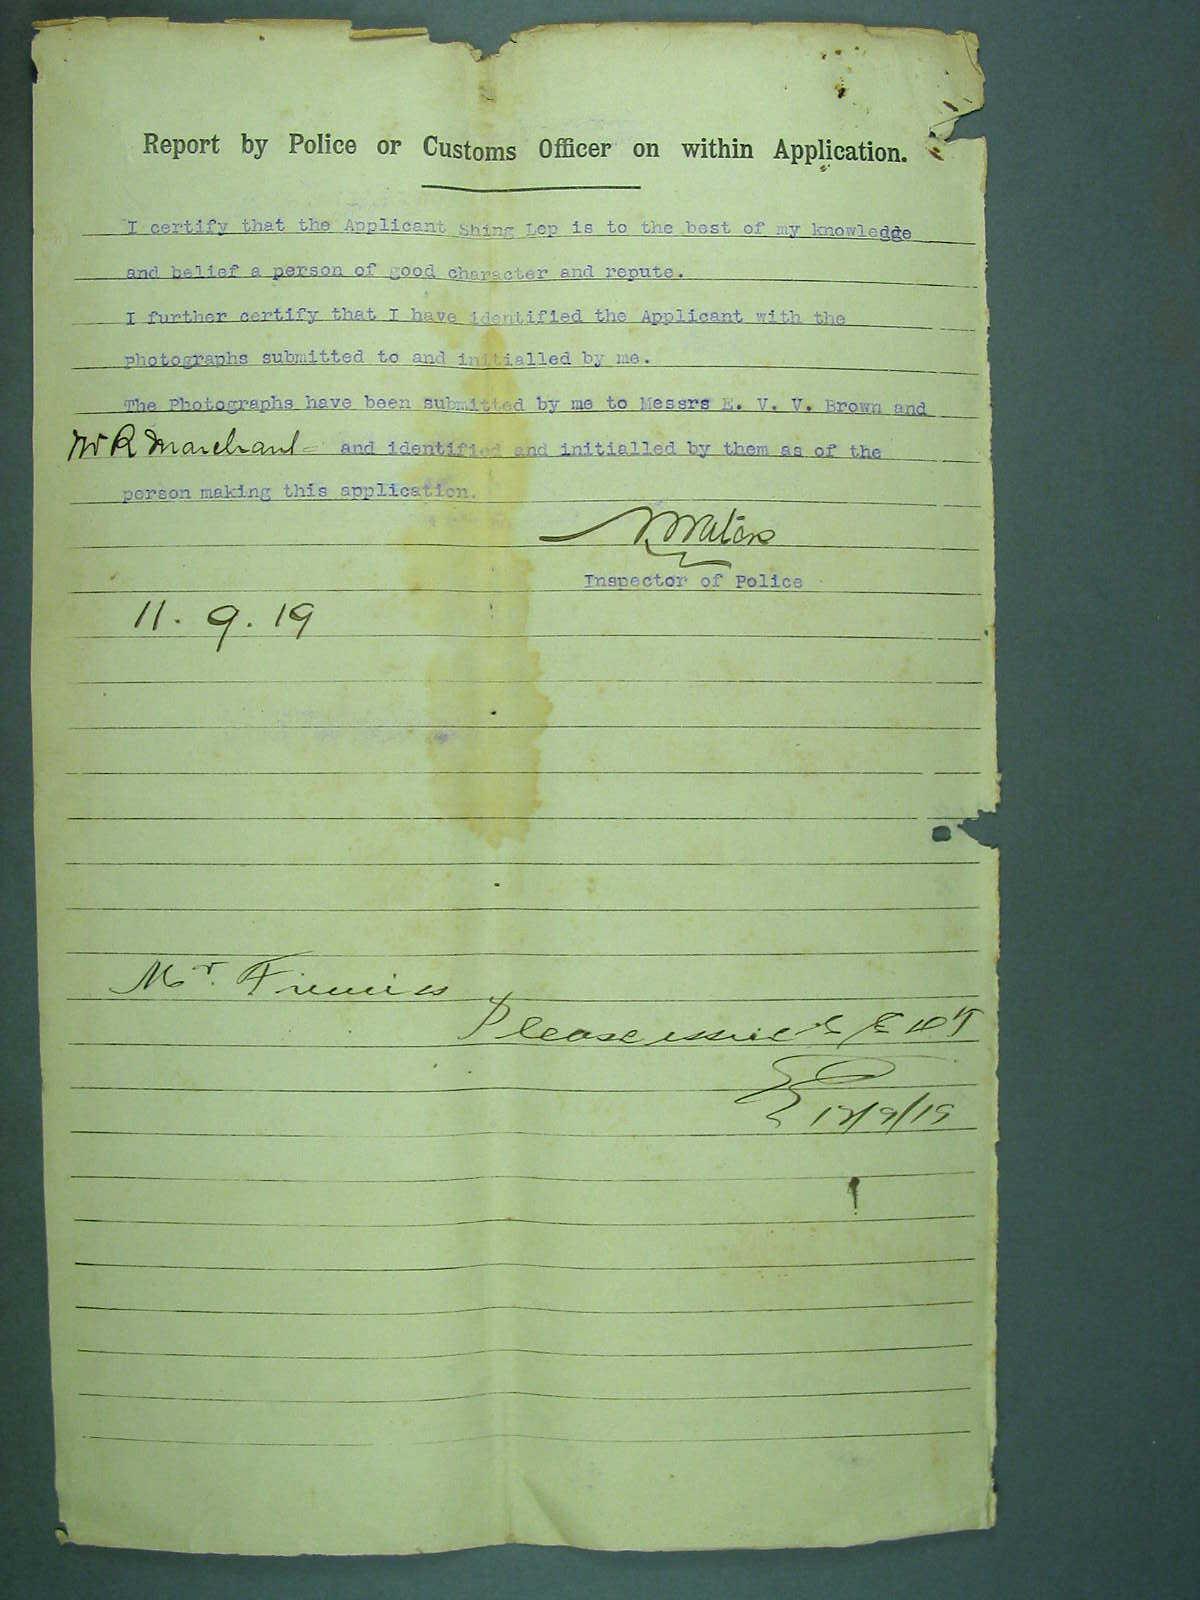 Report by Police or Customs Officer on within Application.
I certify that the Applicant Shing Lep is to the best of my knowledge
and belief a person of good character and repute.
I further certify that I have identified the Applicant with the
photographs submitted to and initialled by me.
The Photographs have been submitted by me to Messrs E. V. V. Brown and
W R Marchant and identified and initialled by them as of the
person making this application.
Waters
Inspector of Police
11. 9. 19
Mr.
Please issue
12/9/19